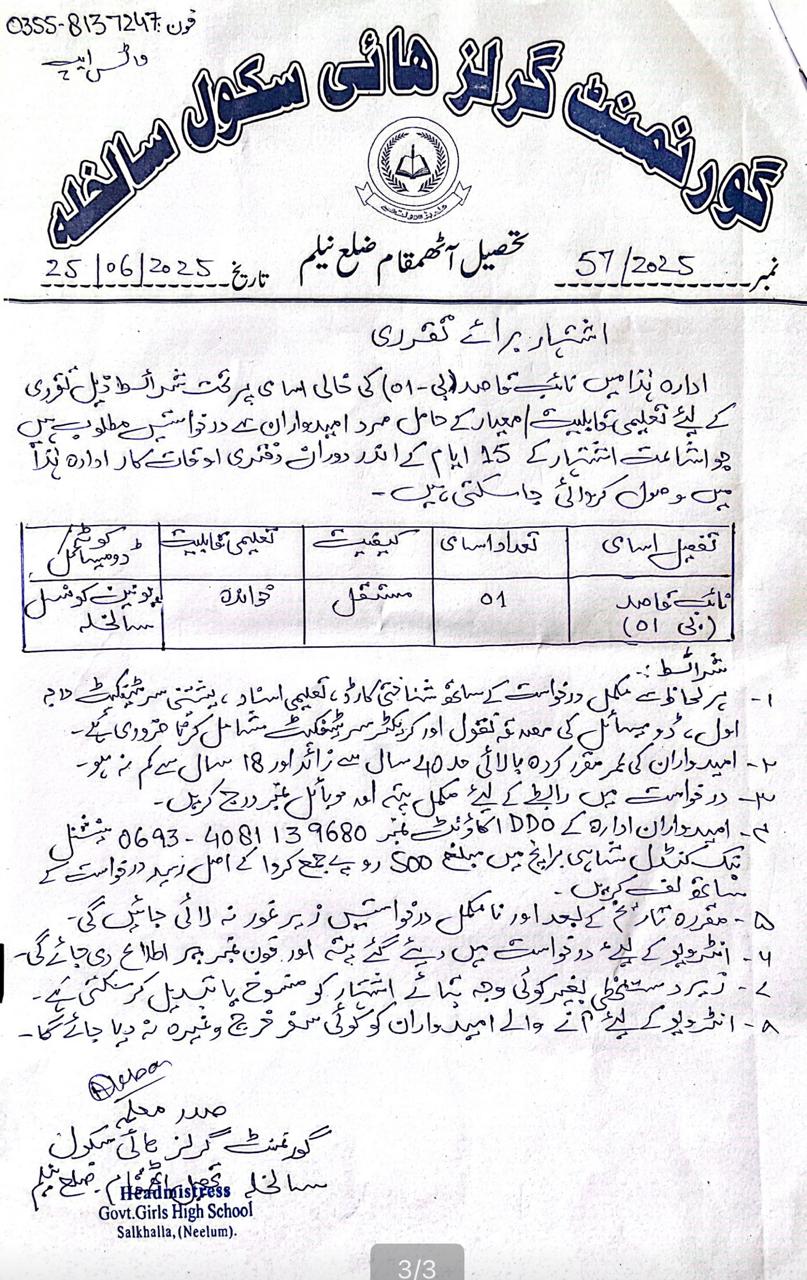 فون: 0355-8137247
واٹس ایپ
گورنمنٹ گرلز ہائی سکول سالخلہ
تحصیل آٹھمقام ضلع نیلم
نمبر 57/2025
تاریخ 25/06/2025
اشتہار برائے تقرری
ادارہ ہٰذا میں نائب قاصد (بی-01) کی خالی اسامی پر تحت شرائط ذیل تقرری
کے لیئے تعلیمی قابلیت/معیار کے حامل مرد امیدواران سے درخواستیں مطلوب ہیں
جو اشاعت اشتہار کے 15 ایام کے اندر دوران دفتری اوقات کار ادارہ ہٰذا
میں وصول کروائی جا سکتی ہیں۔
تفصیل اسامی تعداد اسامی کیفیت تعلیمی قابلیت کوٹہ ڈومیسائل
نائب قاصد (بی 01) 01 مستقل خواندہ یونین کونسل سالخلہ
شرائط:۔
۱- ہر لحاظ سے مکمل درخواست کے ساتھ شناختی کارڈ، تعلیمی اسناد، پشتنی سرٹیفکیٹ درجہ
اول، ڈومیسائل کی مصدقہ نقول اور کریکٹر سرٹیفکیٹ شامل کرنا ضروری ہے۔
۲- امیدواران کی عمر مقرر کردہ بالائی حد 40 سال سے زائد اور 18 سال سے کم نہ ہو۔
۳- درخواست میں رابطے کے لیئے مکمل پتہ اور موبائل نمبر درج کریں۔
۴- امیدواران ادارہ کے DDO اکاؤنٹ نمبر 0693-4081139680 نیشنل
بنک کنڈل شاہی برانچ میں مبلغ 500 روپے جمع کروا کے اصل رسید درخواست کے
ساتھ لف کریں۔
۵- مقررہ تاریخ کے بعد اور نامکمل درخواستیں زیر غور نہ لائی جائیں گی۔
۶- انٹرویو کے لیئے درخواست میں دیئے گئے پتہ اور فون نمبر پر اطلاع دی جائے گی۔
۷- زیر دستخطی بغیر کوئی وجہ بتائے اشتہار کو منسوخ یا تبدیل کر سکتی ہے۔
۸- انٹرویو کے لیئے آنے والے امیدواران کو کوئی سفر خرچ وغیرہ نہ دیا جائے گا۔
صدر معلمہ
گورنمنٹ گرلز ہائی سکول
سالخلہ تحصیل اٹھمقام ضلع نیلم
Headmistress
Govt.Girls High School
Salkhalla,(Neelum).
3/3